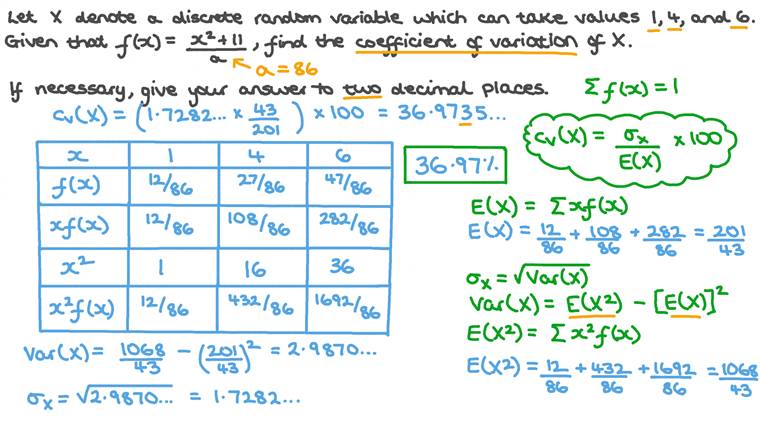 Let X denote a discrete random variable which can take values 1, 4, and 6.
Given that f(x) = (x² + 11)/a, find the coefficient of variation of X.
a = 86
If necessary, give your answer to two decimal places.
Σf(x) = 1
cᵥ(X) = (1.7282... × 43/201) × 100 = 36.9735...
cᵥ(X) = σₓ/E(X) × 100
x 1 4 6
f(x) 12/86 27/86 47/86
xf(x) 12/86 108/86 282/86
x² 1 16 36
x²f(x) 12/86 432/86 1692/86
36.97%
E(X) = Σxf(x)
E(X) = 12/86 + 108/86 + 282/86 = 201/43
σₓ = √Var(X)
Var(X) = E(X²) − [E(X)]²
E(X²) = Σx²f(x)
E(X²) = 12/86 + 432/86 + 1692/86 = 1068/43
Var(X) = 1068/43 − (201/43)² = 2.9870...
σₓ = √2.9870... = 1.7282...